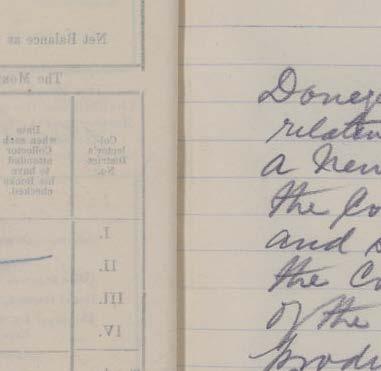 Net Balance as
The Mon
Date when each Collector attended to have his Books checked.
Col-lector's District No.
I.
II.
III.
IV.
relati
a
the Co
and
the Co
of the
produ